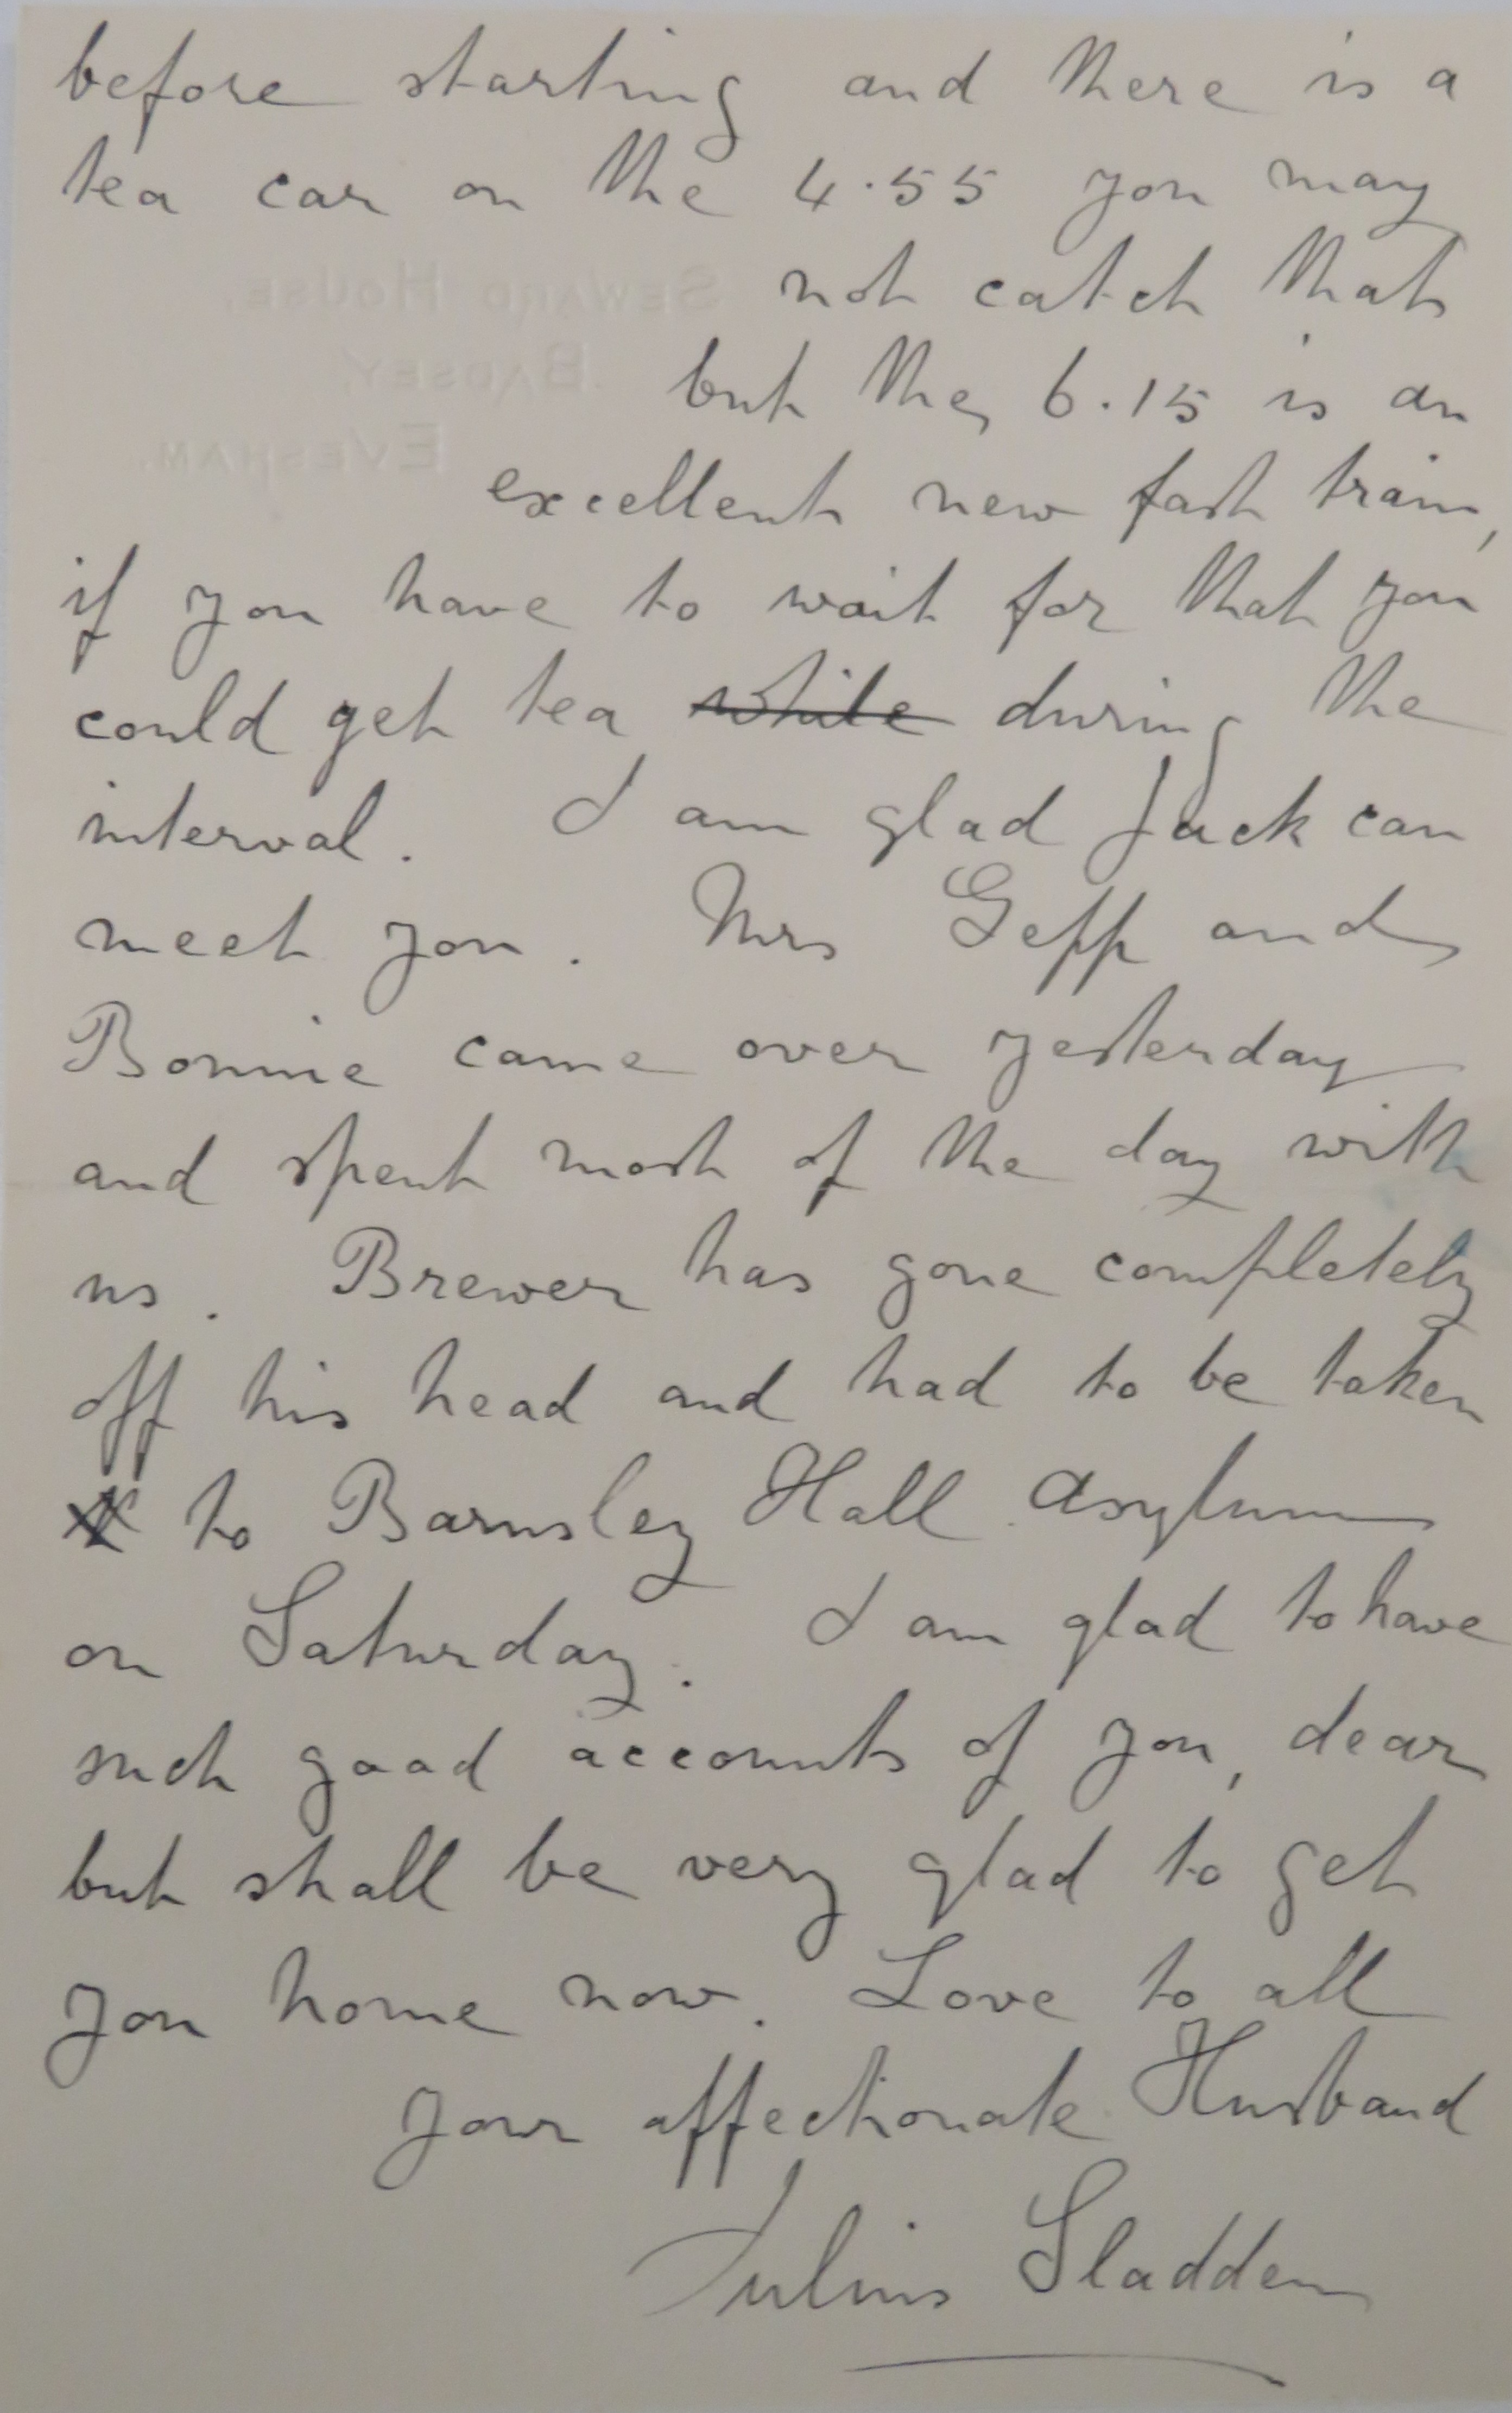 before starting and there is a
tea car on the 4.55 you may
not catch that
SEWARD HOUSE,
BADSEY,
EVESHAM.
but the 6.15 is an
excellent new fast train,
if you have to wait for that you
could get tea ~~while~~ during the
interval. I am glad Jack can
meet you. Mrs Gepp and
Bonnie came over yesterday
and spent most of the day with
us. Brewer has gone completely
off his head and had to be taken
to Barnsley Hall Asylum
on Saturday. I am glad to have
such good accounts of you, dear
but shall be very glad to get
you home now. Love to all
your affectionate Husband
Julius Sladden